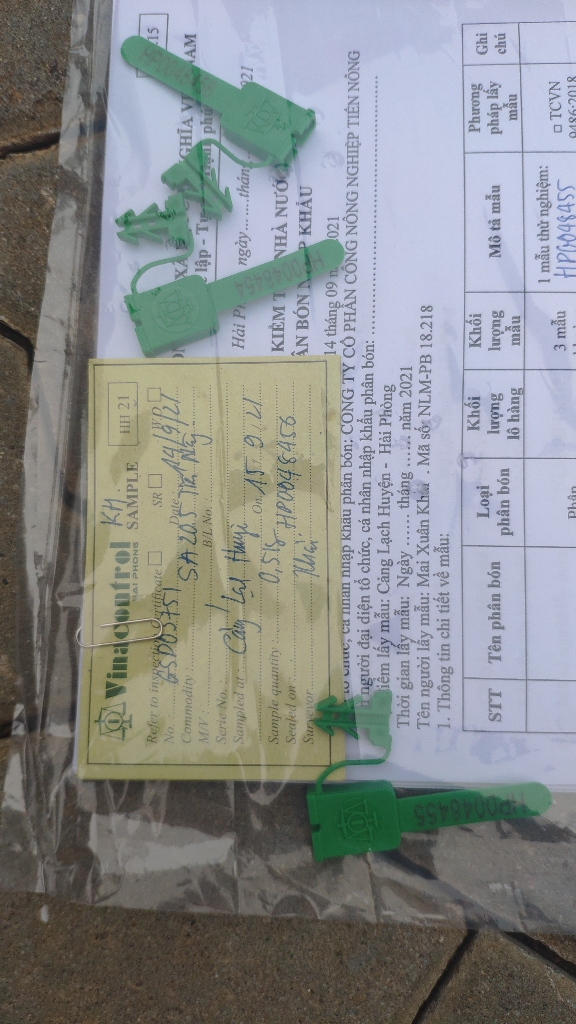 Vinacontrol
HAI PHONG
KH.
SAMPLE
HH 21
Refer to inspection certificate
SR
No
Date: 14/9/21
Commodity
SA 20.5
M/V
B/L No.
Serie No.
Sampled at Cảng Lạch Huyện On 15.9.21
Sample quantity
Sealed on HP0048456
Surveyor Khải
HP0048454
HP0048455
KIỂM TRA NHÀ NƯỚC
PHÂN BÓN NHẬP KHẨU
14 tháng 09 năm 2021
tổ chức, cá nhân nhập khẩu phân bón: CÔNG TY CỔ PHẦN CÔNG NÔNG NGHIỆP TIẾN NÔNG
người đại diện tổ chức, cá nhân nhập khẩu phân bón:
điểm lấy mẫu: Cảng Lạch Huyện - Hải Phòng
Thời gian lấy mẫu: Ngày ....... tháng ...... năm 2021
Tên người lấy mẫu: Mai Xuân Khải . Mã số: NLM-PB 18.218
1. Thông tin chi tiết về mẫu:
STT
Tên phân bón
Loại phân bón
Khối lượng lô hàng
Khối lượng mẫu
Mô tả mẫu
Phương pháp lấy mẫu
Ghi chú
Phân
3 mẫu
1 mẫu thử nghiệm:
HP0048455
□ TCVN
9486:2018